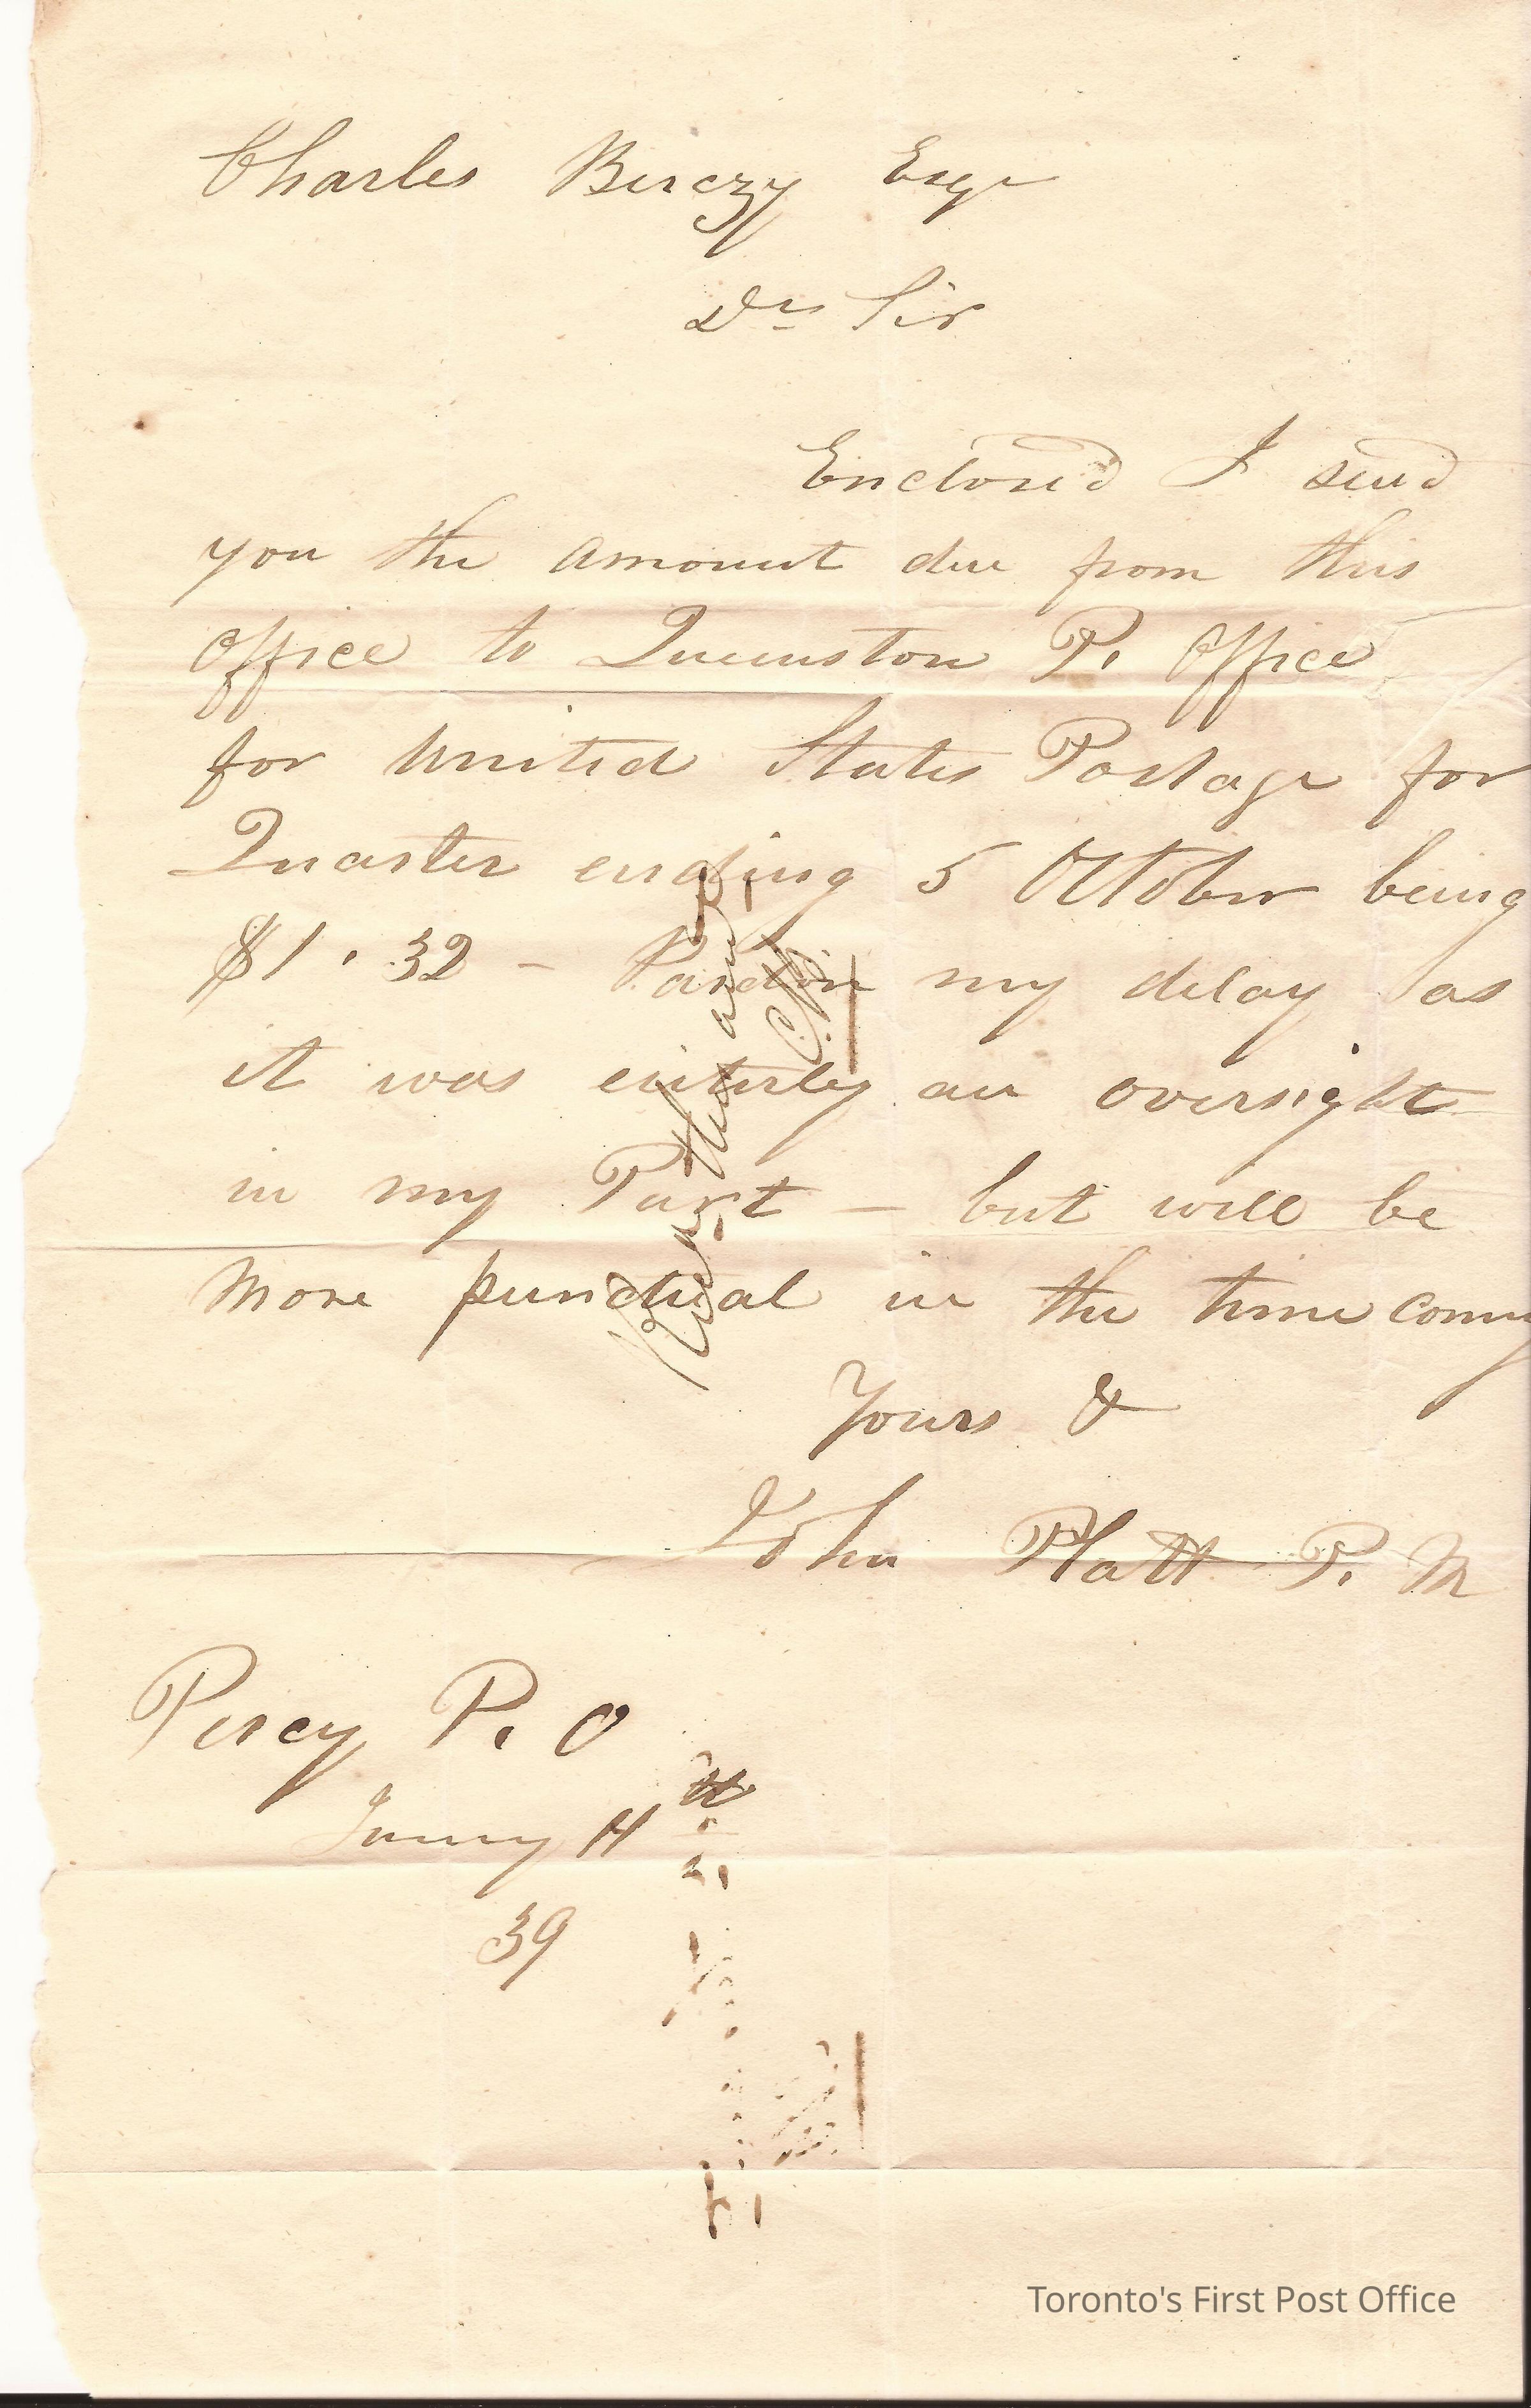 Charles Berczy Esqr
Dr Sir
Enclos'd I send
you the amount due from this
Office to Queenston P. Office
for United States Postage for
Quarter ending 5 October being
$1 . 32 – Pardon my delay as
it was entirley an oversight
in my Part – but will be
More punctual in the time coming
Yours &
John Platt P. M
Percy P. O
Jany
39
Toronto's First Post Office